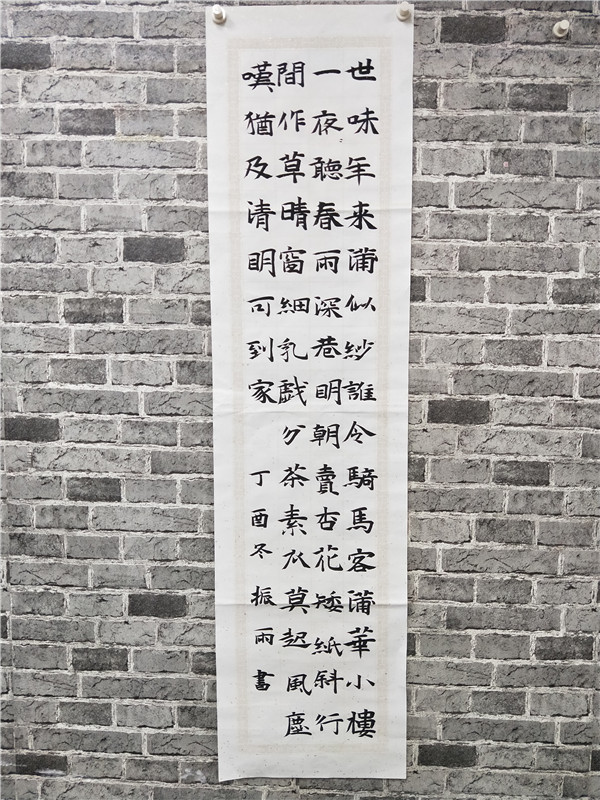 世味年来蒲似紗誰令騎馬客蒲華小樓
一夜聽春雨深巷明朝賣杏花矮紙斜行
間作草晴窗細乳戲分茶素衣莫起風塵
嘆猶及清明可到家
丁酉冬振雨書